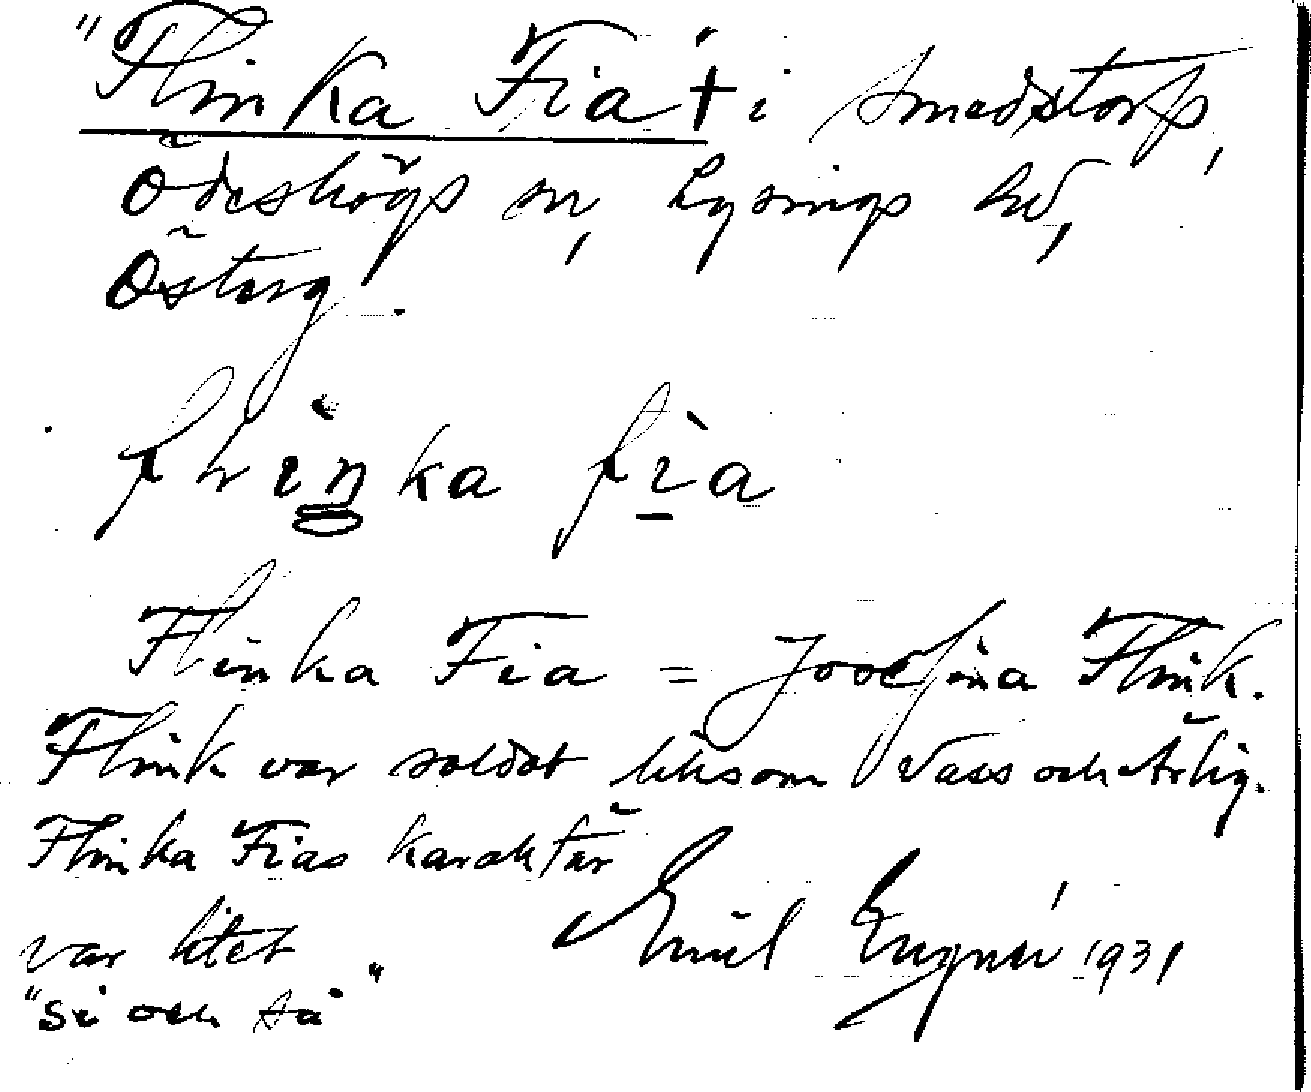 "Flinka Fia" † i Smedstorp,
Ödeshögs sn, Lysings hd,
Österg.
flinka fia
Flinka Fia = Josefina Flink.
Flink var soldat liksom Vass och Ärlig.
Flinka Fias karaktär
var litet
"si och så"
Emil 1931